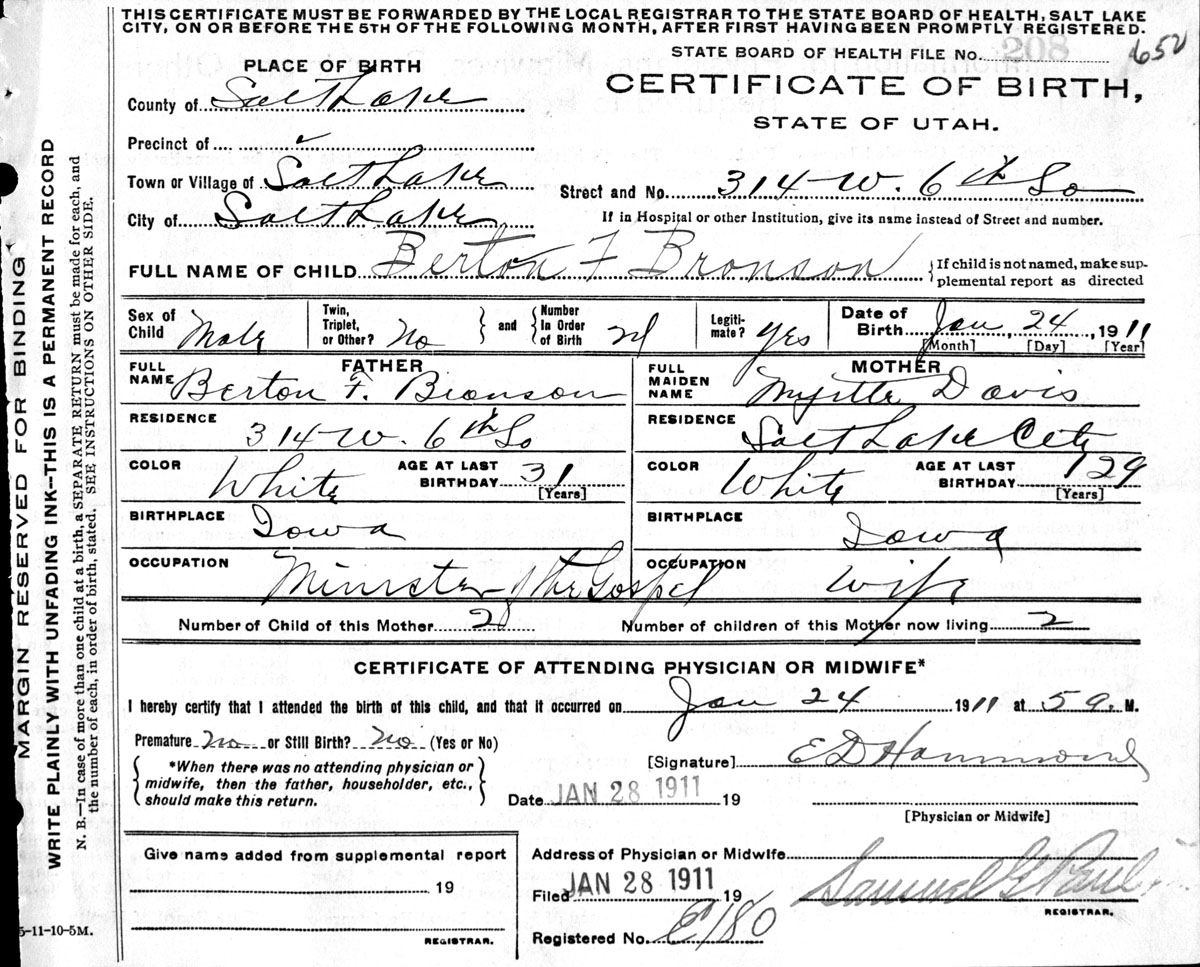 THIS CERTIFICATE MUST BE FORWARDED BY THE LOCAL REGISTRAR TO THE STATE BOARD OF HEALTH, SALT LAKE
CITY, ON OR BEFORE THE 5TH OF THE FOLLOWING MONTH, AFTER FIRST HAVING BEEN PROMPTLY REGISTERED.
STATE BOARD OF HEALTH FILE No. 208 652
PLACE OF BIRTH
CERTIFICATE OF BIRTH,
STATE OF UTAH.
County of Salt Lake
Precinct of
Town or Village of Salt Lake
Street and No. 314 W. 6th So
City of Salt Lake
If in Hospital or other Institution, give its name instead of Street and number.
FULL NAME OF CHILD Berton F Bronson
{If child is not named, make sup-
plemental report as directed
Sex of Child Male
Twin, Triplet, or Other? No
and
Number In Order of Birth 2d
Legiti-mate? Yes
Date of Birth Jan 24, 1911
[Month] [Day] [Year]
FATHER
FULL NAME Berton F. Bronson
RESIDENCE
314 W. 6th So
COLOR White
AGE AT LAST BIRTHDAY 31
[Years]
BIRTHPLACE
Iowa
OCCUPATION
Minister of the Gospel
MOTHER
FULL MAIDEN NAME Myrtle Davis
RESIDENCE
Salt Lake City
COLOR White
AGE AT LAST BIRTHDAY 29
[Years]
BIRTHPLACE
Iowa
OCCUPATION
Wife
Number of Child of this Mother 2
Number of children of this Mother now living 2
CERTIFICATE OF ATTENDING PHYSICIAN OR MIDWIFE*
I hereby certify that I attended the birth of this child, and that it occurred on Jan 24 1911 at 5 a. M.
Premature No or Still Birth? No (Yes or No)
*When there was no attending physician or
midwife, then the father, householder, etc.,
should make this return.
[Signature] E D Hammond
Date JAN 28 1911 19
[Physician or Midwife]
Give name added from supplemental report
19
REGISTRAR.
Address of Physician or Midwife
Filed JAN 28 1911 19
Samuel G. Paul
REGISTRAR.
Registered No. E180
5-11-10-5M.
MARGIN RESERVED FOR BINDING
WRITE PLAINLY WITH UNFADING INK—THIS IS A PERMANENT RECORD
N. B.—In case of more than one child at a birth, a SEPARATE RETURN must be made for each, and
the number of each, in order of birth, stated. SEE INSTRUCTIONS ON OTHER SIDE.